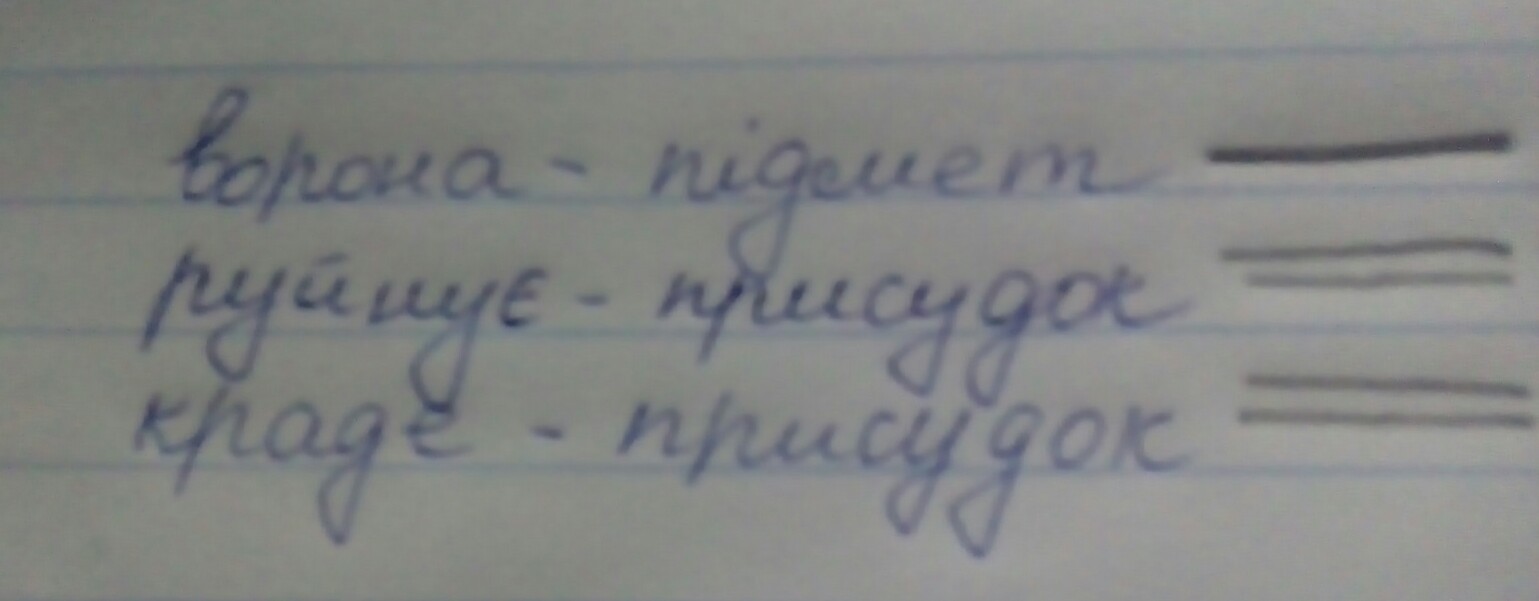 ворона - підмет
руйнує - присудок
краде - присудок